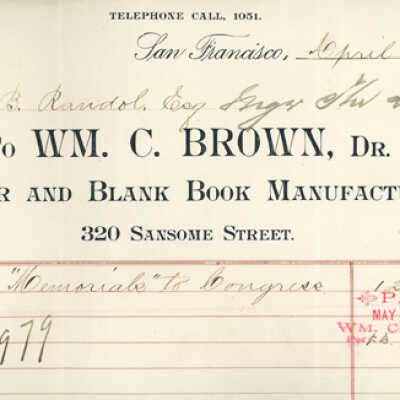 TELEPHONE CALL, 1051.
San Francisco, April
B. Randol, Esq
To WM. C. BROWN, DR.
R AND BLANK BOOK MANUFACTU
320 SANSOME STREET.
"Memorials" to Congress
PA
MAY
WM. C
979